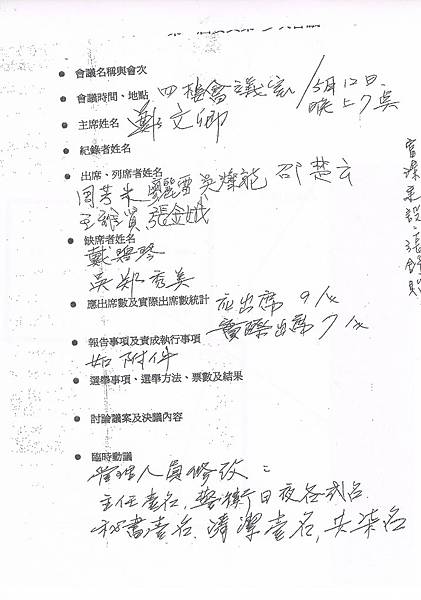 ● 會議名稱與會次
● 會議時間、地點 四樓會議室/5月12日
晚上7點
● 主席姓名 鄭文卿
● 紀錄者姓名
● 出席、列席者姓名
周芳米 吳燦龍 邵楚云
張金城
● 缺席者姓名
戴碧琴
吳鄭秀美
● 應出席數及實際出席數統計 應出席 9人
實際出席 7人
● 報告事項及責成執行事項
如附件
● 選舉事項、選舉方法、票數及結果
● 討論議案及決議內容
● 臨時動議
管理人員修改:
主任壹名,警衛日夜各貳名
秘書壹名,清潔壹名,共柒名